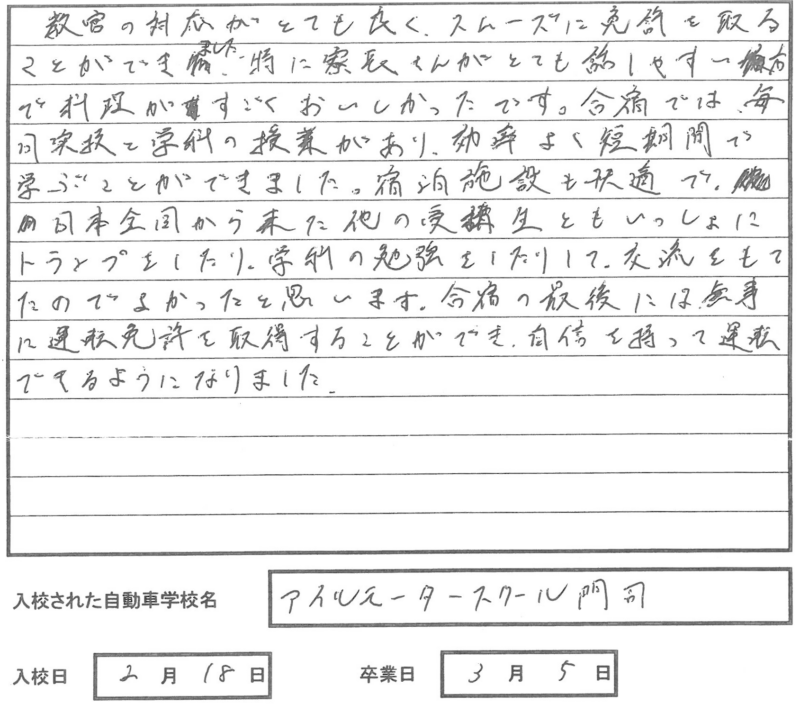 教官の対応がとても良く、スムーズに免許を取る
ことができました。特に寮長さんがとても話しやすい
で料理がすごくおいしかったです。合宿では、毎
日実技と学科の授業があり、効率よく短期間で
学ぶことができました。宿泊施設も快適で、
日本全国から来た他の受講生ともいっしょに
トランプをしたり、学科の勉強をしたりして、交流をもて
たのでよかったと思います。合宿の最後には、無事
に運転免許を取得することができ、自信を持って運転
できるようになりました。
入校された自動車学校名 アイルモータースクール門司
入校日 2月18日 卒業日 3月5日